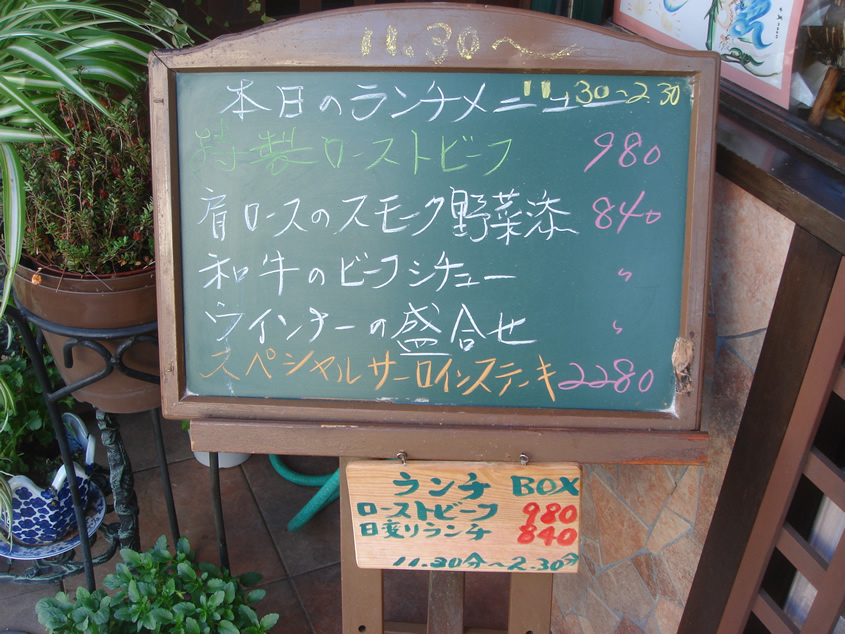 11.30〜
本日のランチメニュー 11.30〜2.30
特製ローストビーフ 980
肩ロースのスモーク野菜添 840
和牛のビーフシチュー 〃
ウインナーの盛合せ 〃
スペシャルサーロインステーキ 2280
ランチ BOX
ローストビーフ 980
日変りランチ 840
11.30分〜2.30分